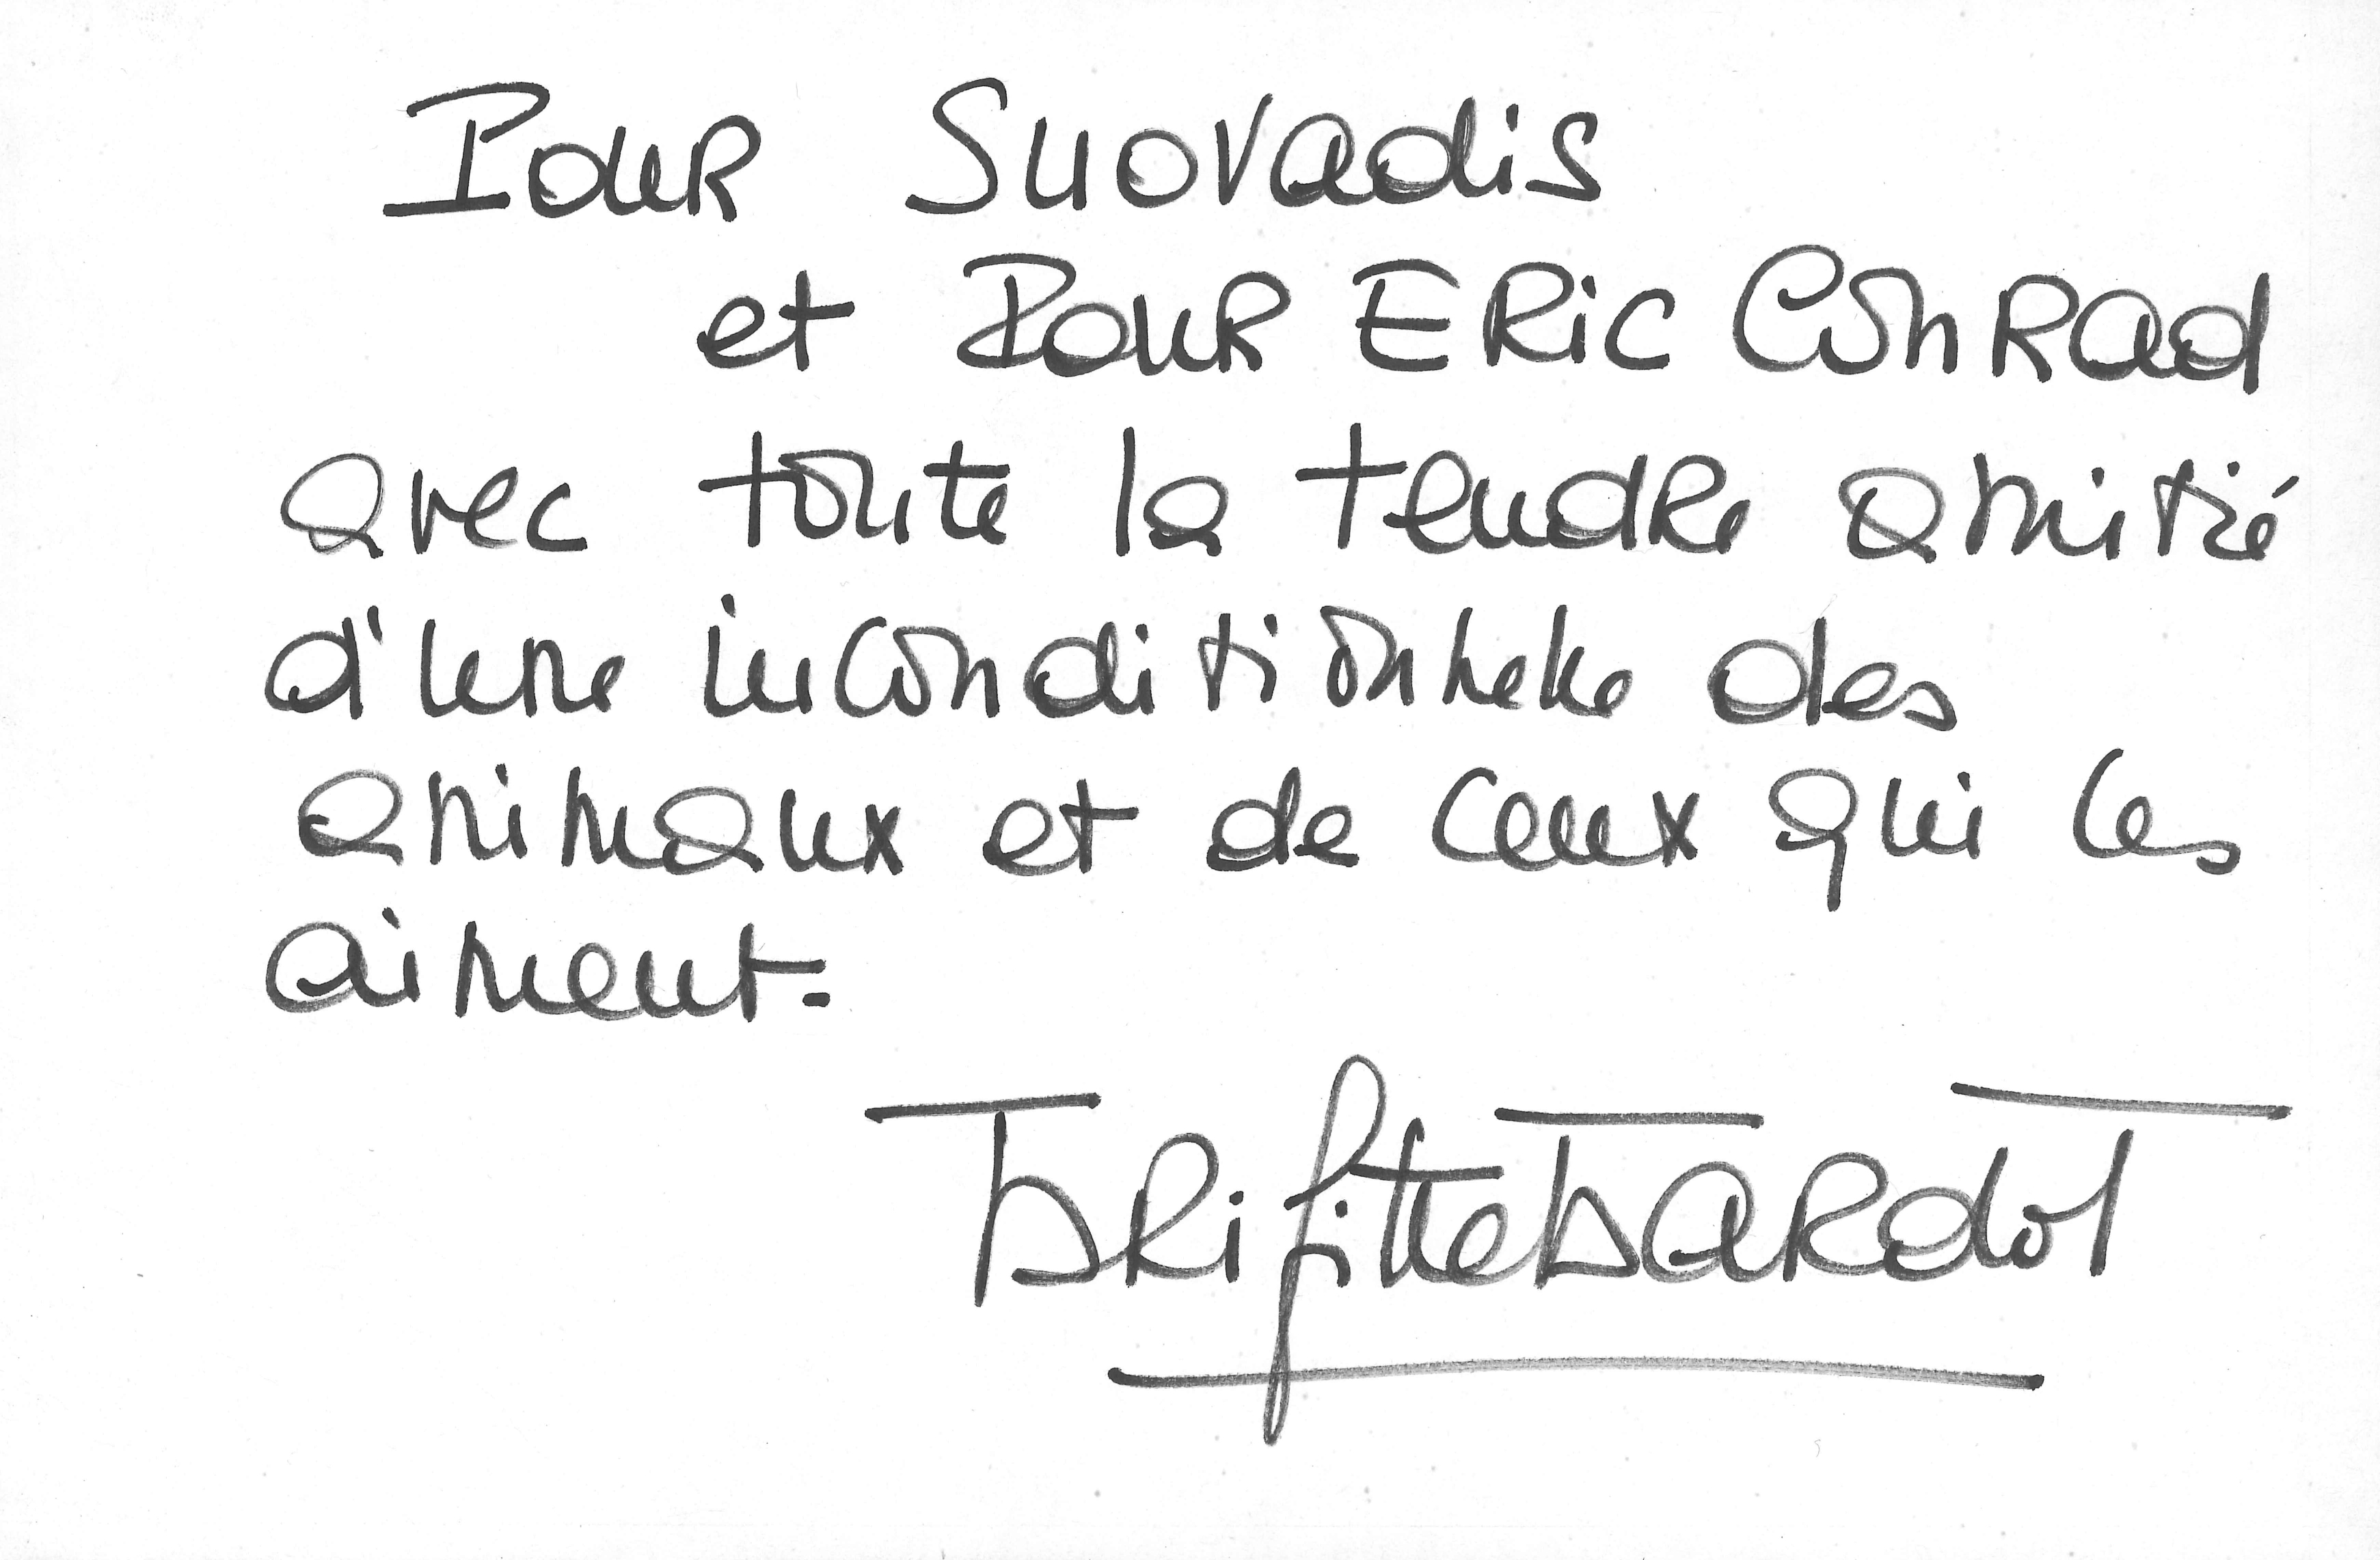 Pour Suovadis
et Pour Eric Conrad
avec toute la tendre amitié
d'une inconditionnelle des
animaux et de ceux qui les
aiment.
Brigitte Bardot